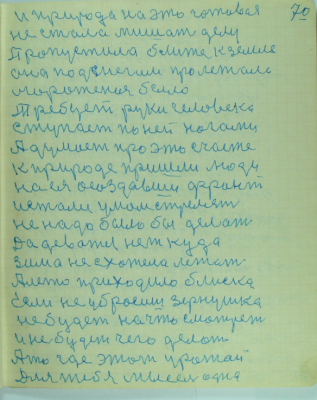 70
и природа на это готовая
не стала мишат делу
Пропустила блите к земле
она под снегам пролежала
огороженая бело
Требует руки человека
ступает по ней ногами
А думает про это счасте
к природе пришли люди
на ея создавши франт
и стали умом стрелят
не надо было бы делат
Да деватся нет куда
зима не схотела лежат
А лето приходило блиска
Если не убросиш зернушка
не будет на что смотрет
и не будет чего делат
А то где этот урожай
Для тебя мысля одна